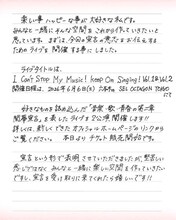 楽しい事 ハッピーな事が 大好きな私です。
みんなと一緒に そんな空間を これから作っていきたいと
思っています。まずは、今回の宣言の意志を お伝えする
ための ライブを 開催する事に しました。
ライブタイトルは、
I Can't Stop My Music! Keep On Singing! Vol.1&Vol.2
開催日時は、2016年6月6日(月) 六本木 SEL OCTAGON TOKYO
にて
好きなものを詰め込んだ「音楽・歌・青春の第二章
開幕宣言」を表したライブを2公演 開催します!!
詳しくは、新しくできた オフィシャルホームページの リンクから
ご覧ください。 本日より チケット 販売開始です。
宣言という形で 表明させていただきましたが、堅苦しい
感じではなく みんなと一緒に 楽しい空間を 作っていきたい
ですし、宣言を受け取りに 来てくれたら 嬉しいです!!